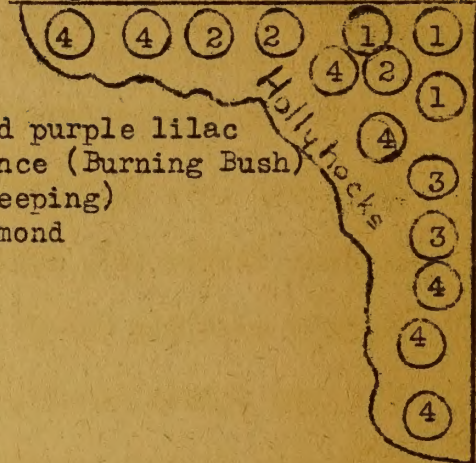 4 4 2 2 1 1
4 2
1
Hollyhocks
d purple lilac
4
nce (Burning Bush)
3
eeping)
mond
3
4
4
4